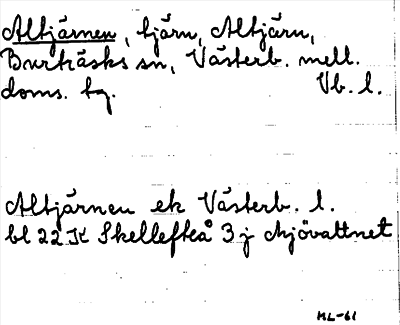 Altjärnen, tjärn, Altjärn,
Burträsks sn, Västerb. mell.
doms. tg. Vb. l.
Altjärnen ek Västerb. l.
bl 22 K Skellefteå 3 j Mjövattnet
ML-61